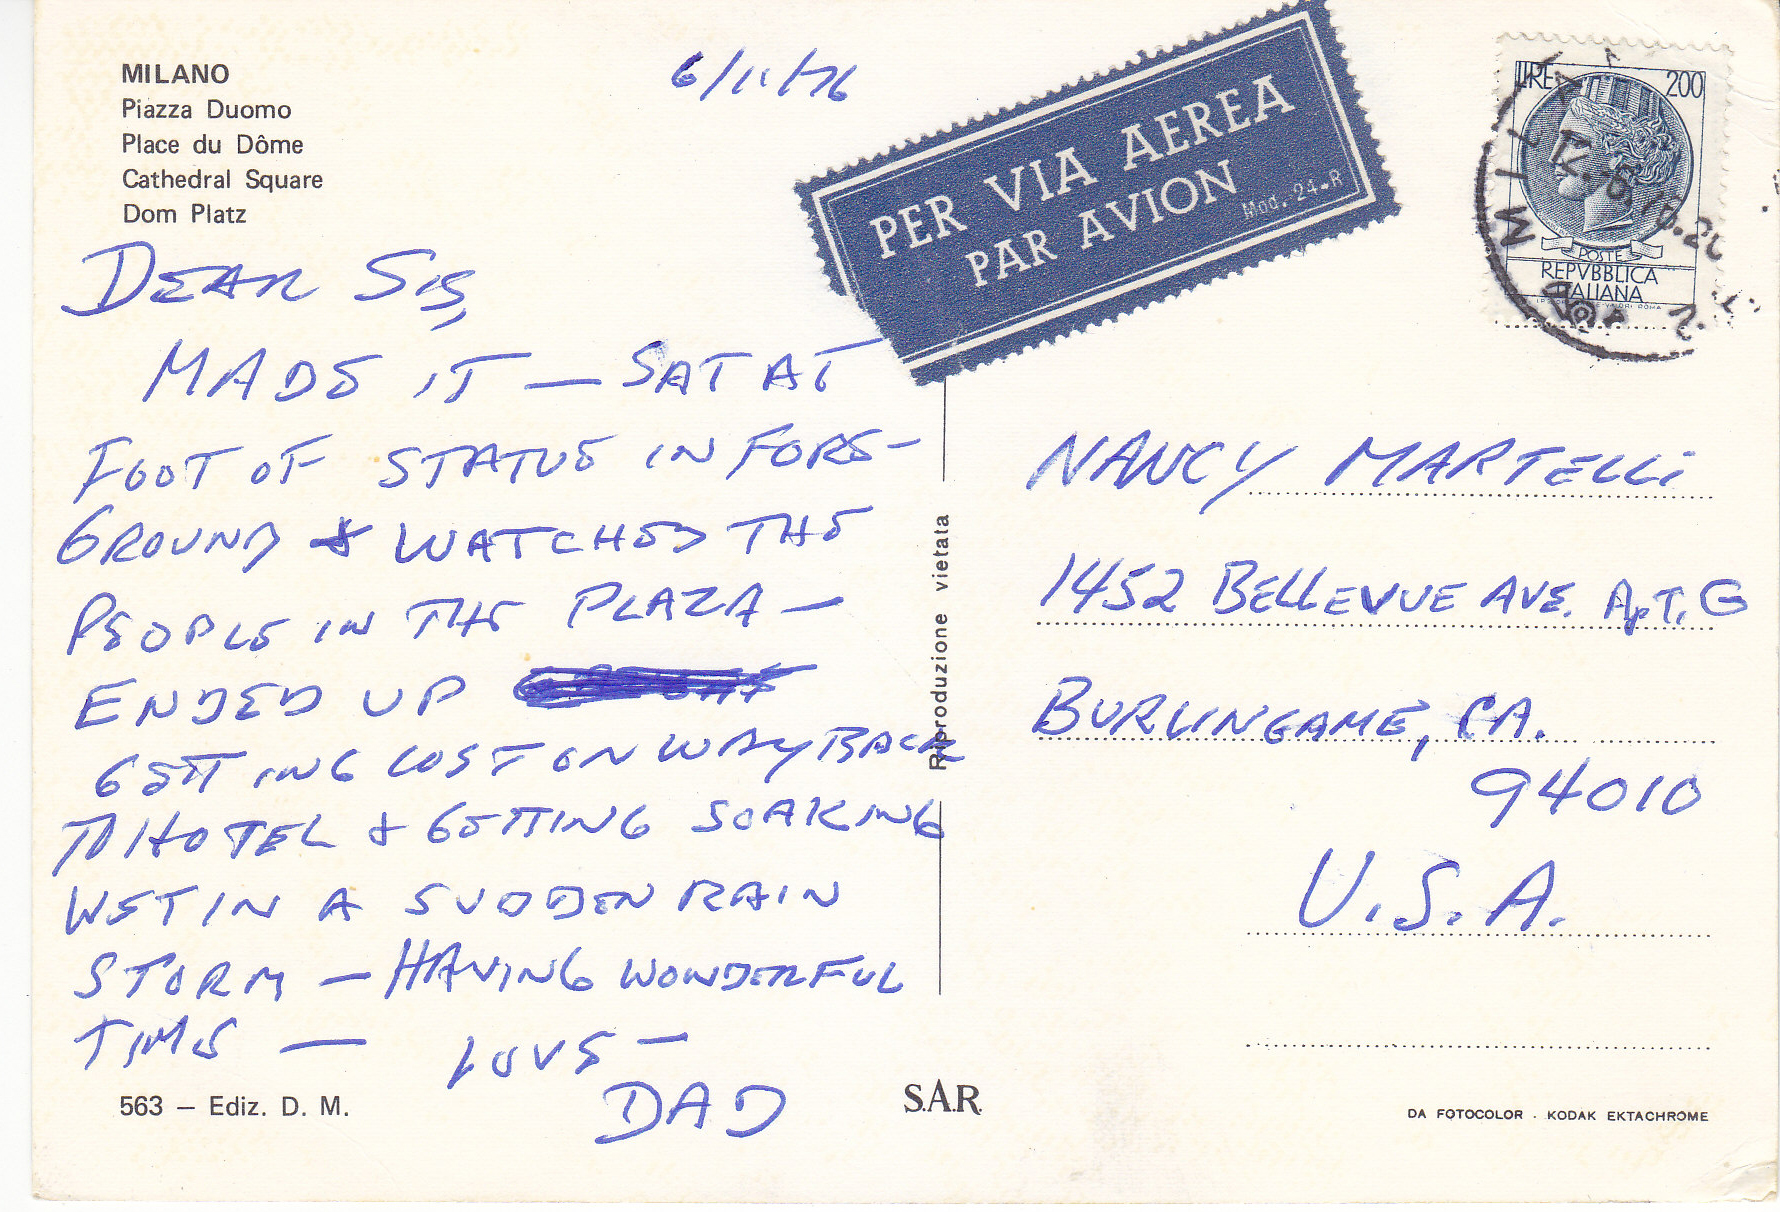 MILANO
Piazza Duomo
Place du Dôme
Cathedral Square
Dom Platz
6/11/76
PER VIA AEREA
PAR AVION
Mod. 24-R
LIRE 200
POSTE
REPVBBLICA
ITALIANA
MILANO
DEAR SIS,
MADE IT — SAT AT
FOOT OF STATUE IN FORE-
GROUND & WATCHED THE
PEOPLE IN THE PLAZA —
ENDED UP
GETTING LOST ON WAY BACK
TO HOTEL & GETTING SOAKING
WET IN A SUDDEN RAIN
STORM — HAVING WONDERFUL
TIME — LOVE —
DAD
563 — Ediz. D. M.
Riproduzione vietata
S.A.R.
NANCY MARTELLI
1452 BELLEVUE AVE. APT. G
BURLINGAME, CA.
94010
U.S.A.
DA FOTOCOLOR - KODAK EKTACHROME